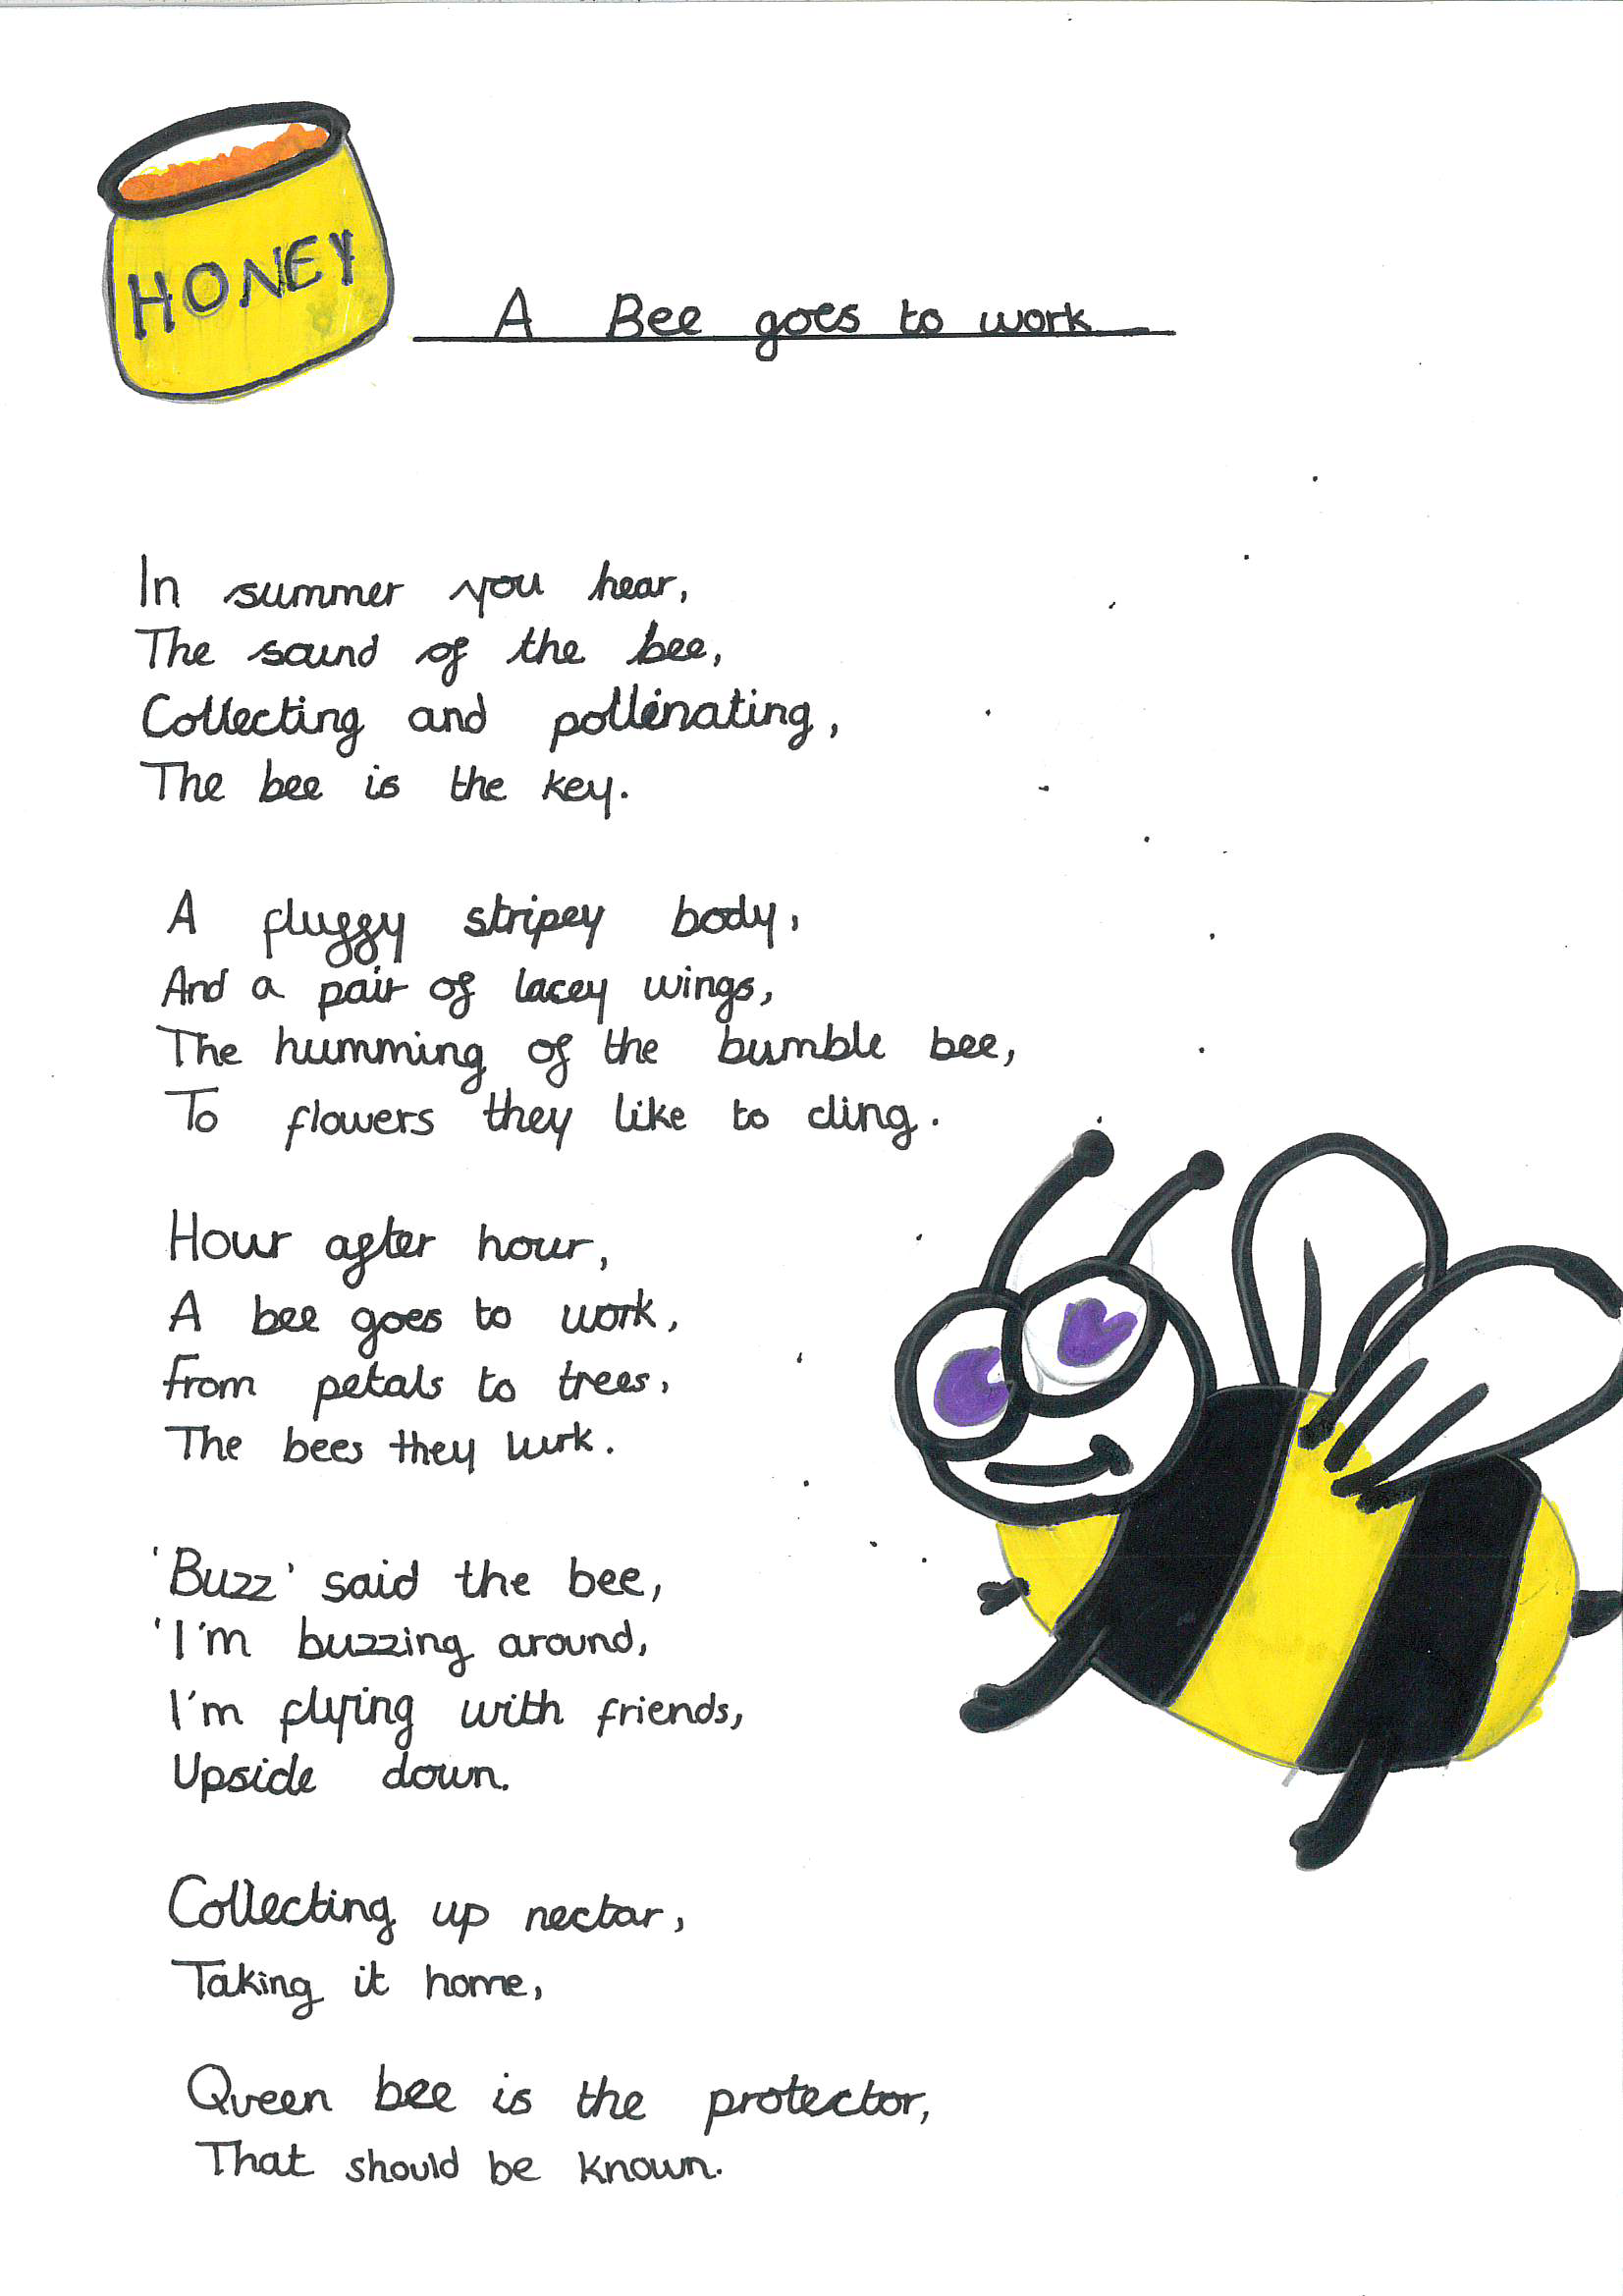 HONEY
A Bee goes to work
In summer you hear,
The sound of the bee,
Collecting and pollinating,
The bee is the key.
A fluffy stripey body,
And a pair of lacey wings,
The humming of the bumble bee,
To flowers they like to cling.
Hour after hour,
A bee goes to work,
From petals to trees,
The bees they lurk.
'Buzz' said the bee,
'I'm buzzing around,
I'm flying with friends,
Upside down.
Collecting up nectar,
Taking it home,
Queen bee is the protector,
That should be known.